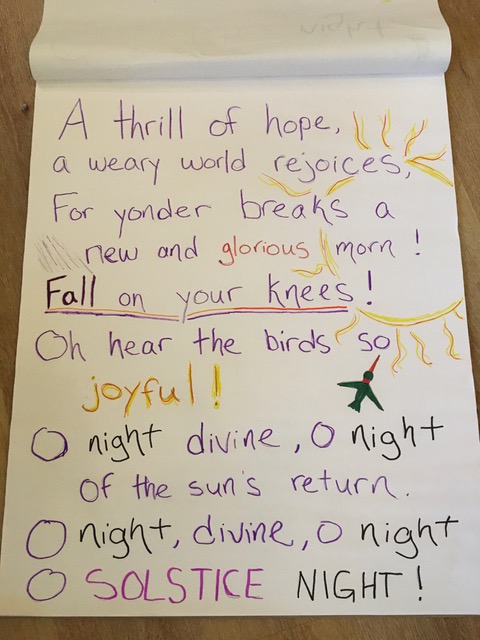 A thrill of hope,
a weary world rejoices,
For yonder breaks a
new and glorious morn!
Fall on your knees!
Oh hear the birds so
joyful!
O night divine, O night
of the sun's return.
O night, divine, O night
O SOLSTICE NIGHT!